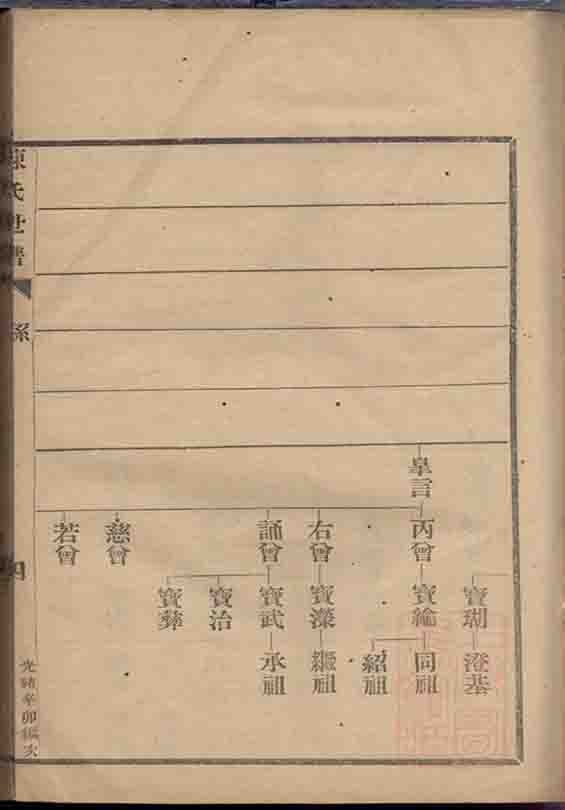 寶瑚
澄基
皐言
丙曾
寶綸
同祖
紹祖
右曾
寶藻
繼祖
誦曾
寶武
承祖
寶治
寶彝
慈曾
若曾
陳氏世譜
系
四
光緒辛卯編次